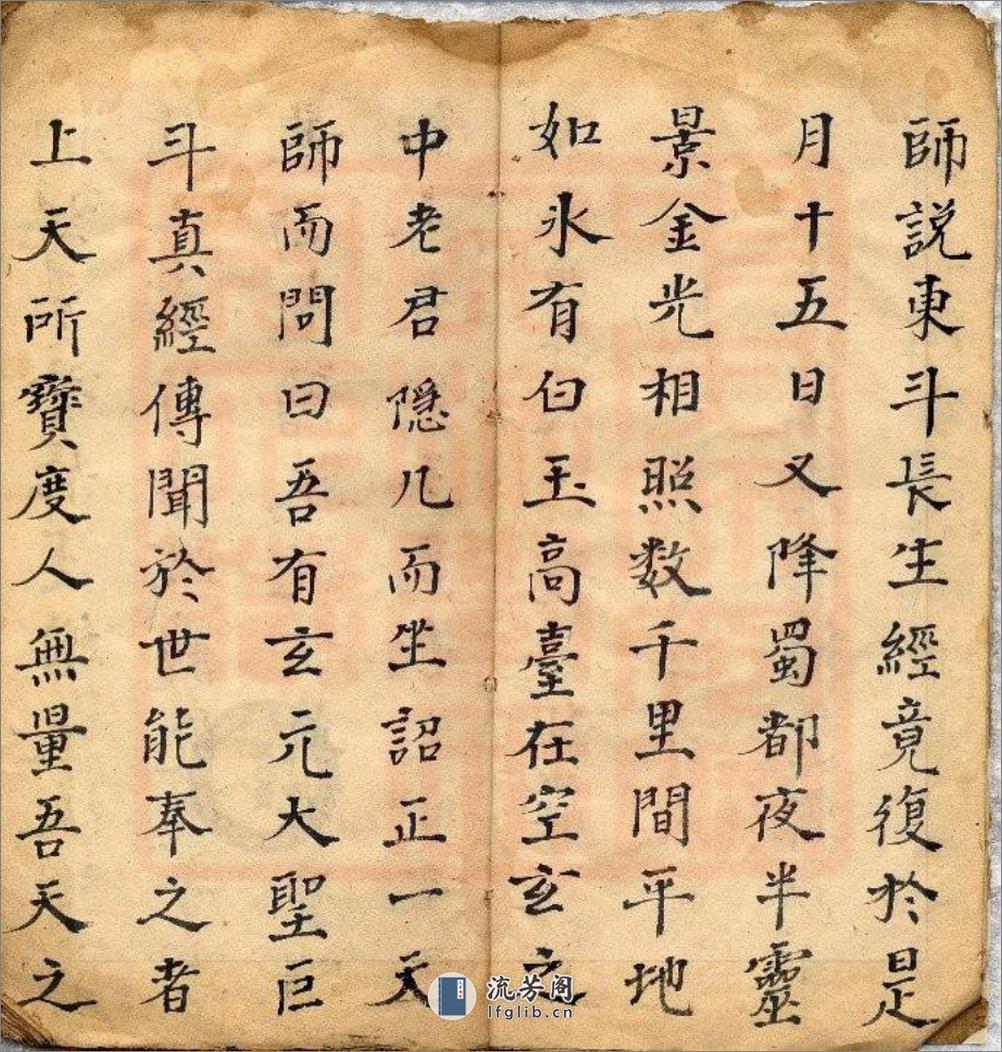 師説東斗長生經竟復於是
月十五日又降蜀都夜半靈
景金光相照数千里間平地
如氷有白玉高臺在空玄之
中老君隠几而坐詔正一天
師而問曰吾有玄元大聖巨
斗真經傳聞於世能奉之者
上天所寶度人無量吾天之
流芳阁
lfglib.cn